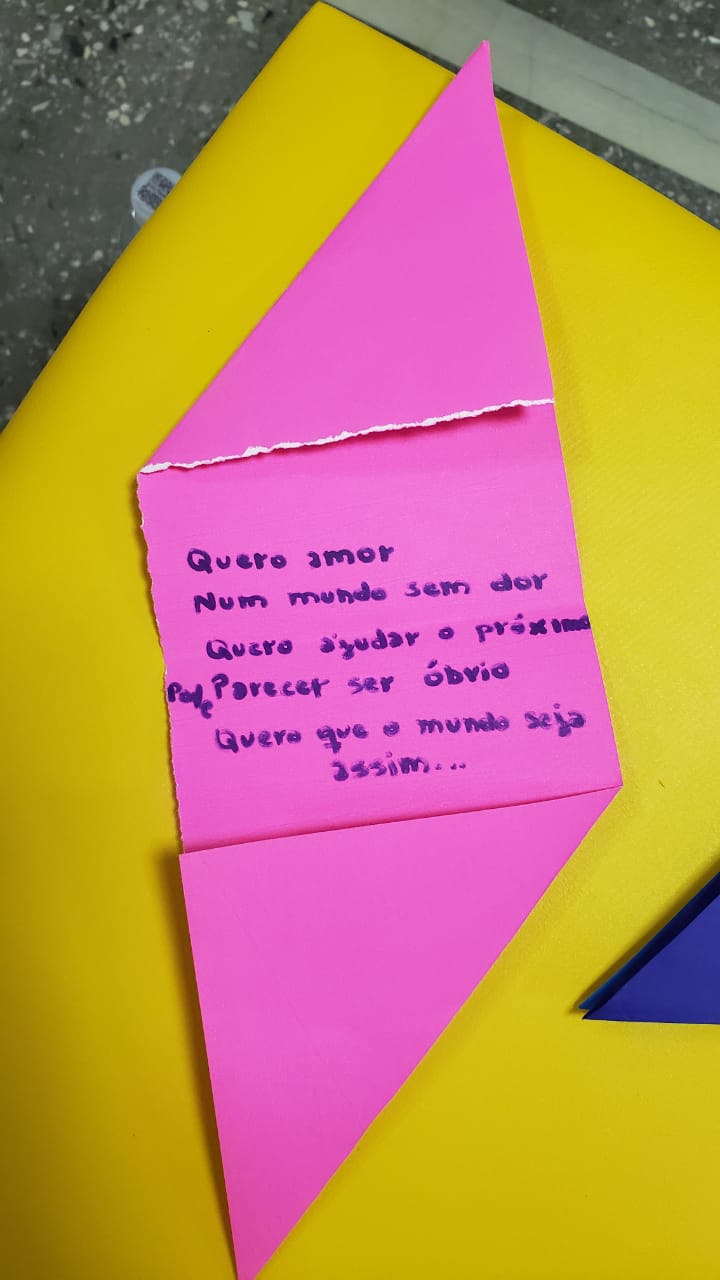 Quero amor
Num mundo sem dor
Quero ajudar o próximo
Pode Parecer ser óbvio
Quero que o mundo seja
assim...